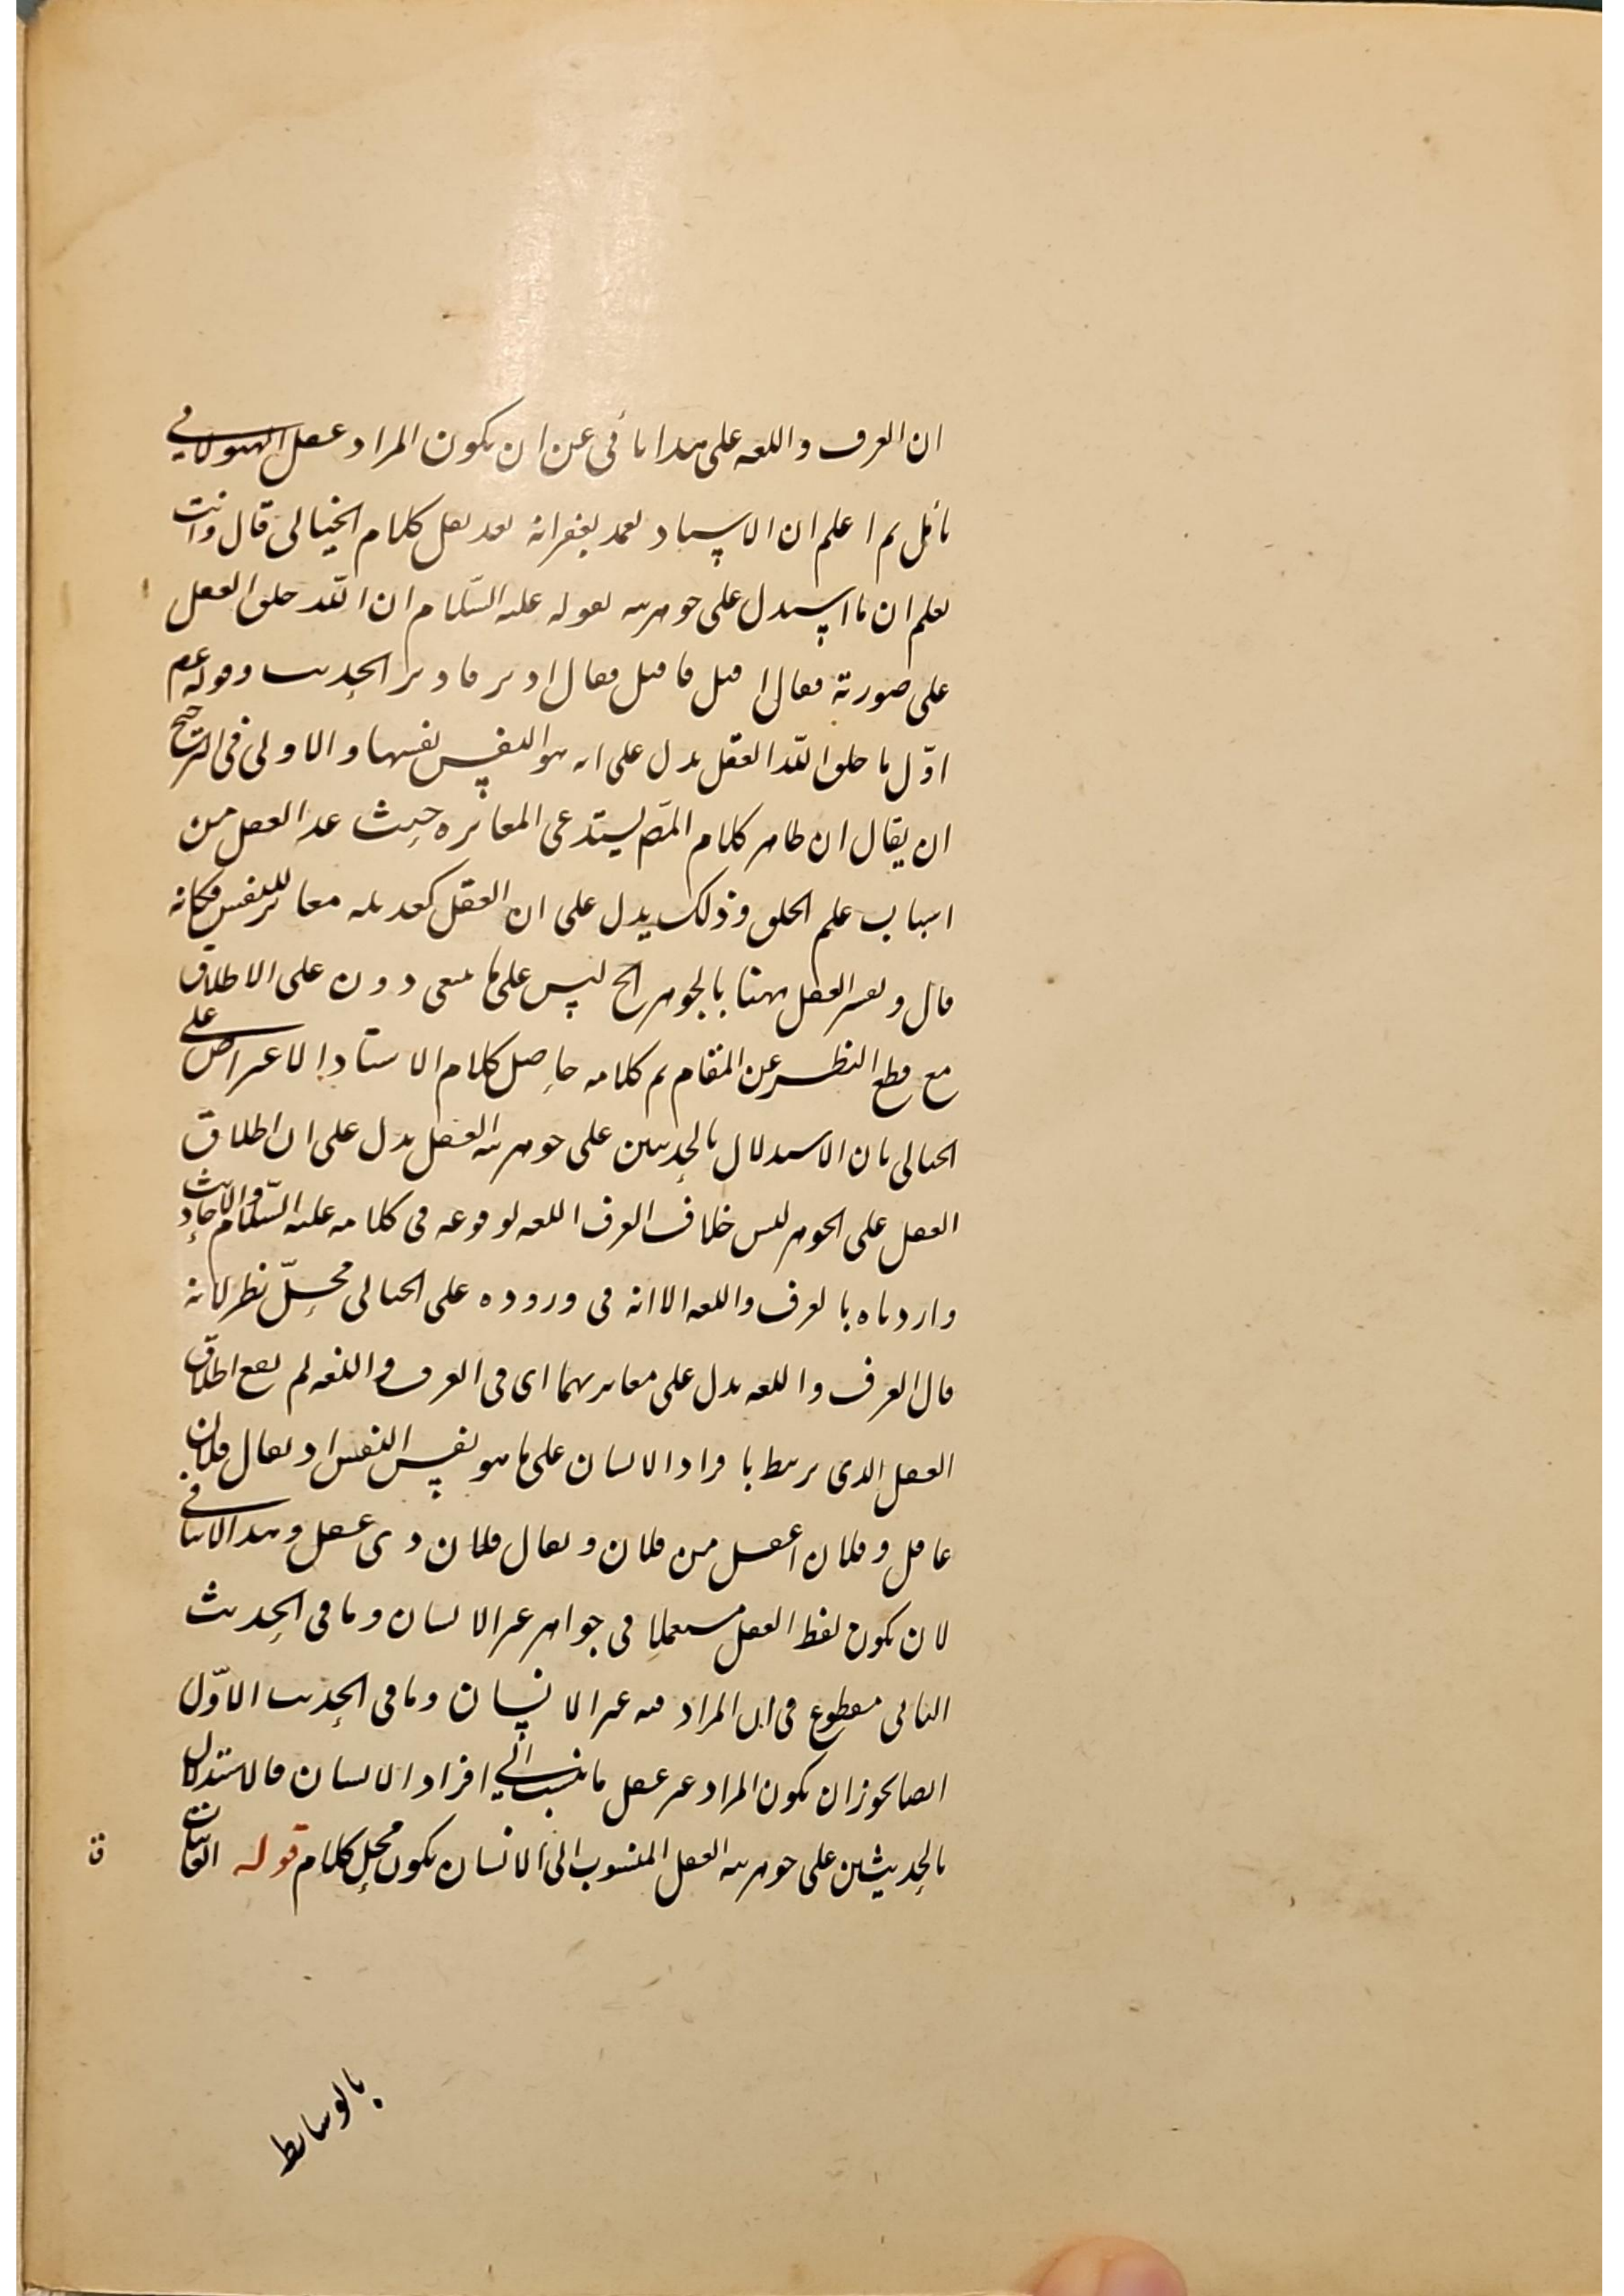 ان العرف واللغه على هذا تأبى عن ان يكون المراد عقل الهيولانى
تأمل ثم اعلم ان الاستاد تغمد بغفرانه بعد نقل كلام الخيالى قال وانت
تعلم ان ما استدل على جوهريته بقوله عليه السّلام ان اللّه خلق العقل
على صورته فقال اقبل فاقبل فقال ادبر فادبر الحديث وقوله عم
اوّل ما خلق اللّه العقل يدل على انه هو النفس نفسها والاولى فى الترجيح
ان يقال ان ظاهر كلام المص يستدعى المغايره حيث عد العقل من
اسباب علم الخلق وذلك يدل على ان العقل كعديله مغاير للنفس فكانه
قال وتفسير العقل ههنا بالجوهر الخ ليس على ما ينبغى دون على الاطلاق
مع قطع النظر عن المقام تم كلامه حاصل كلام الاستاد الاعتراض على
الخيالى بان الاستدلال بالحديثين على جوهرية العقل يدل على ان اطلاق
العقل على الجوهر ليس خلاف العرف اللغه لوقوعه فى كلامه عليه السّلام والاحاديث
وارد ناه بالعرف واللغه الا انه فى وروده على الخيالى محلّ نظر لانه
قال العرف واللغه يدل على مغايرتهما اى فى العرف واللغه لم يقع اطلاق
العقل الذى يرتبط بافراد الانسان على ما هو نفس النفس اذ يقال فلان
عاقل وفلان اعقل من فلان ويقال فلان ذى عقل وهذا لا ينافى
لان يكون لفظ العقل مستعملا فى جواهر غير الانسان وما فى الحديث
الثانى مقطوع فى ان المراد منه غير الانسان وما فى الحديث الاوّل
ايضا يجوز ان يكون المراد غير عقل ما ينسب الى افراد الانسان فالاستدلال
بالحديثين على جوهرية العقل المنسوب الى الانسان يكون محل كلام قوله الغائبات
ق
بالوسايط